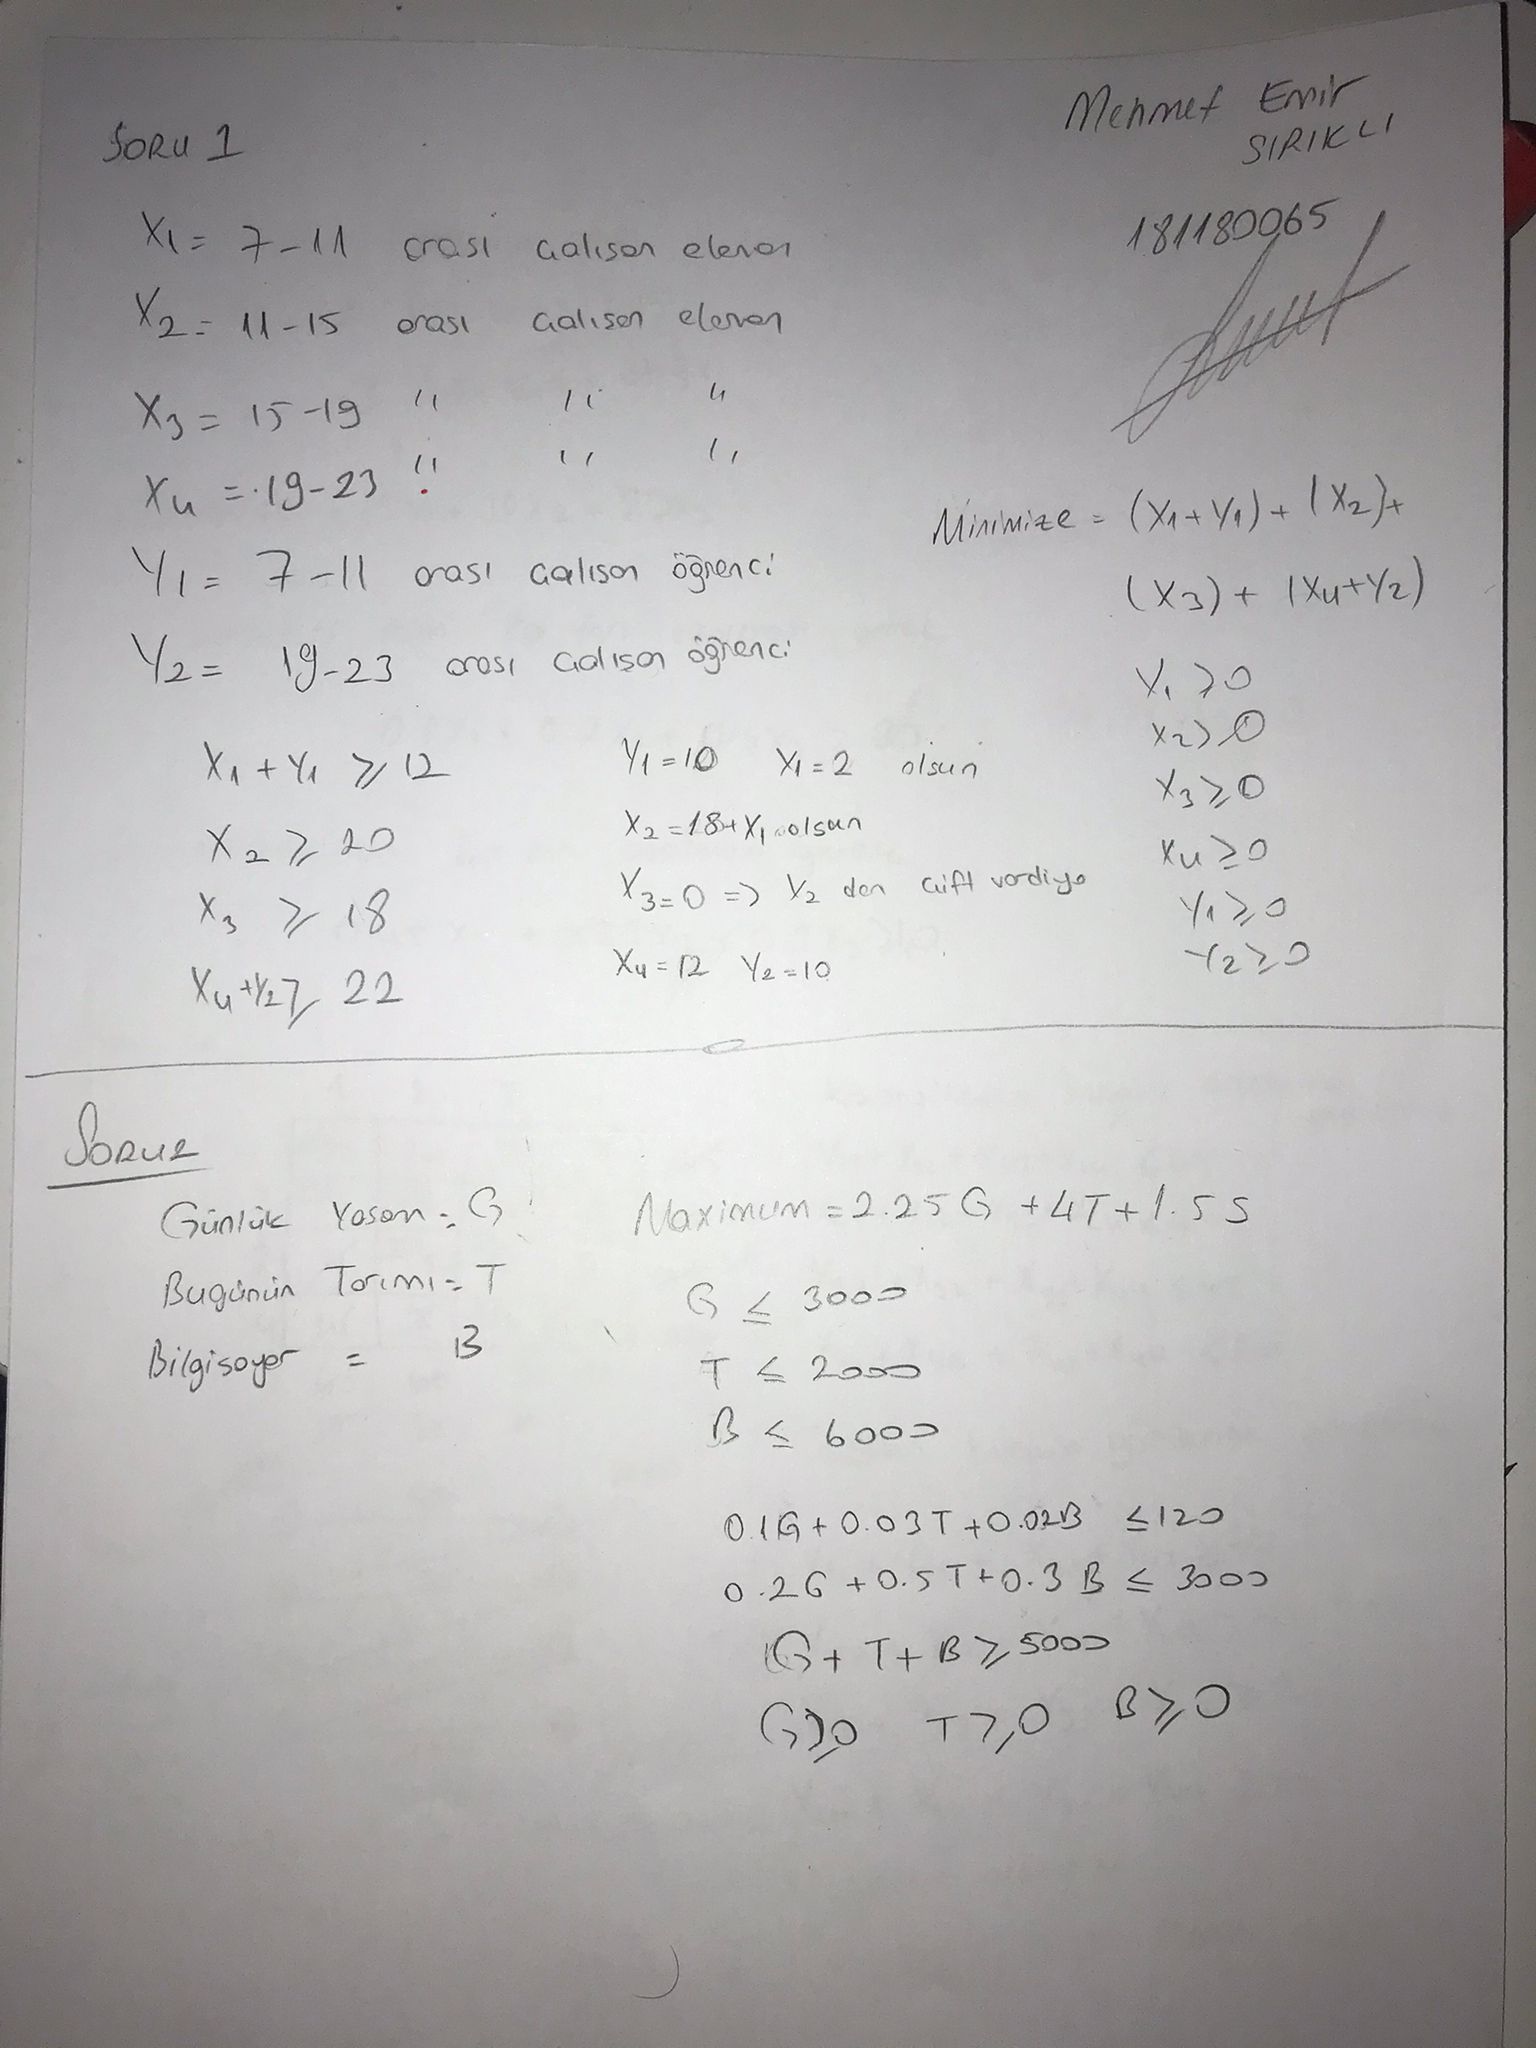 SORU 1
Mehmet Emir
SIRIKLI
181180065
X1 = 7-11 arası çalışan eleman
X2 = 11-15 arası çalışan eleman
X3 = 15-19 " " "
X4 = 19-23 " " "
Y1 = 7-11 arası çalışan öğrenci
Y2 = 19-23 arası çalışan öğrenci
Minimize = (X1+Y1) + (X2)+
(X3) + (X4+Y2)
X1 + Y1 ≥ 12
X2 ≥ 20
X3 ≥ 18
X4+Y2 ≥ 22
Y1 = 10 X1 = 2 olsun
X2 = 18+X1 olsun
X3 = 0 => X2 den çift vardiya
X4 = 12 Y2 = 10
X1 ≥ 0
X2 ≥ 0
X3 ≥ 0
X4 ≥ 0
Y1 ≥ 0
Y2 ≥ 0
SORU 2
Günlük Yaşam = G
Bugünün Tarımı = T
Bilgisayar = B
Maximum = 2.25 G + 4T + 1.5 S
G ≤ 3000
T ≤ 2000
B ≤ 6000
0.1G + 0.03T + 0.02B ≤ 120
0.2G + 0.5T + 0.3B ≤ 3000
G + T + B ≥ 5000
G ≥ 0 T ≥ 0 B ≥ 0